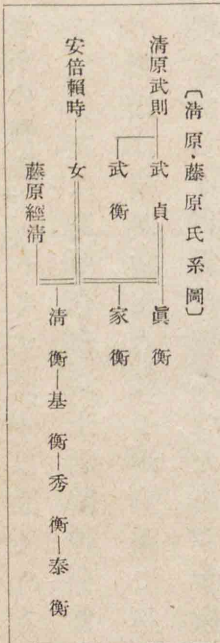 〔淸原・藤原氏系圖〕
淸原武則
武貞
眞衡
武衡
家衡
安倍賴時
女
藤原經淸
淸衡
基衡
秀衡
泰衡